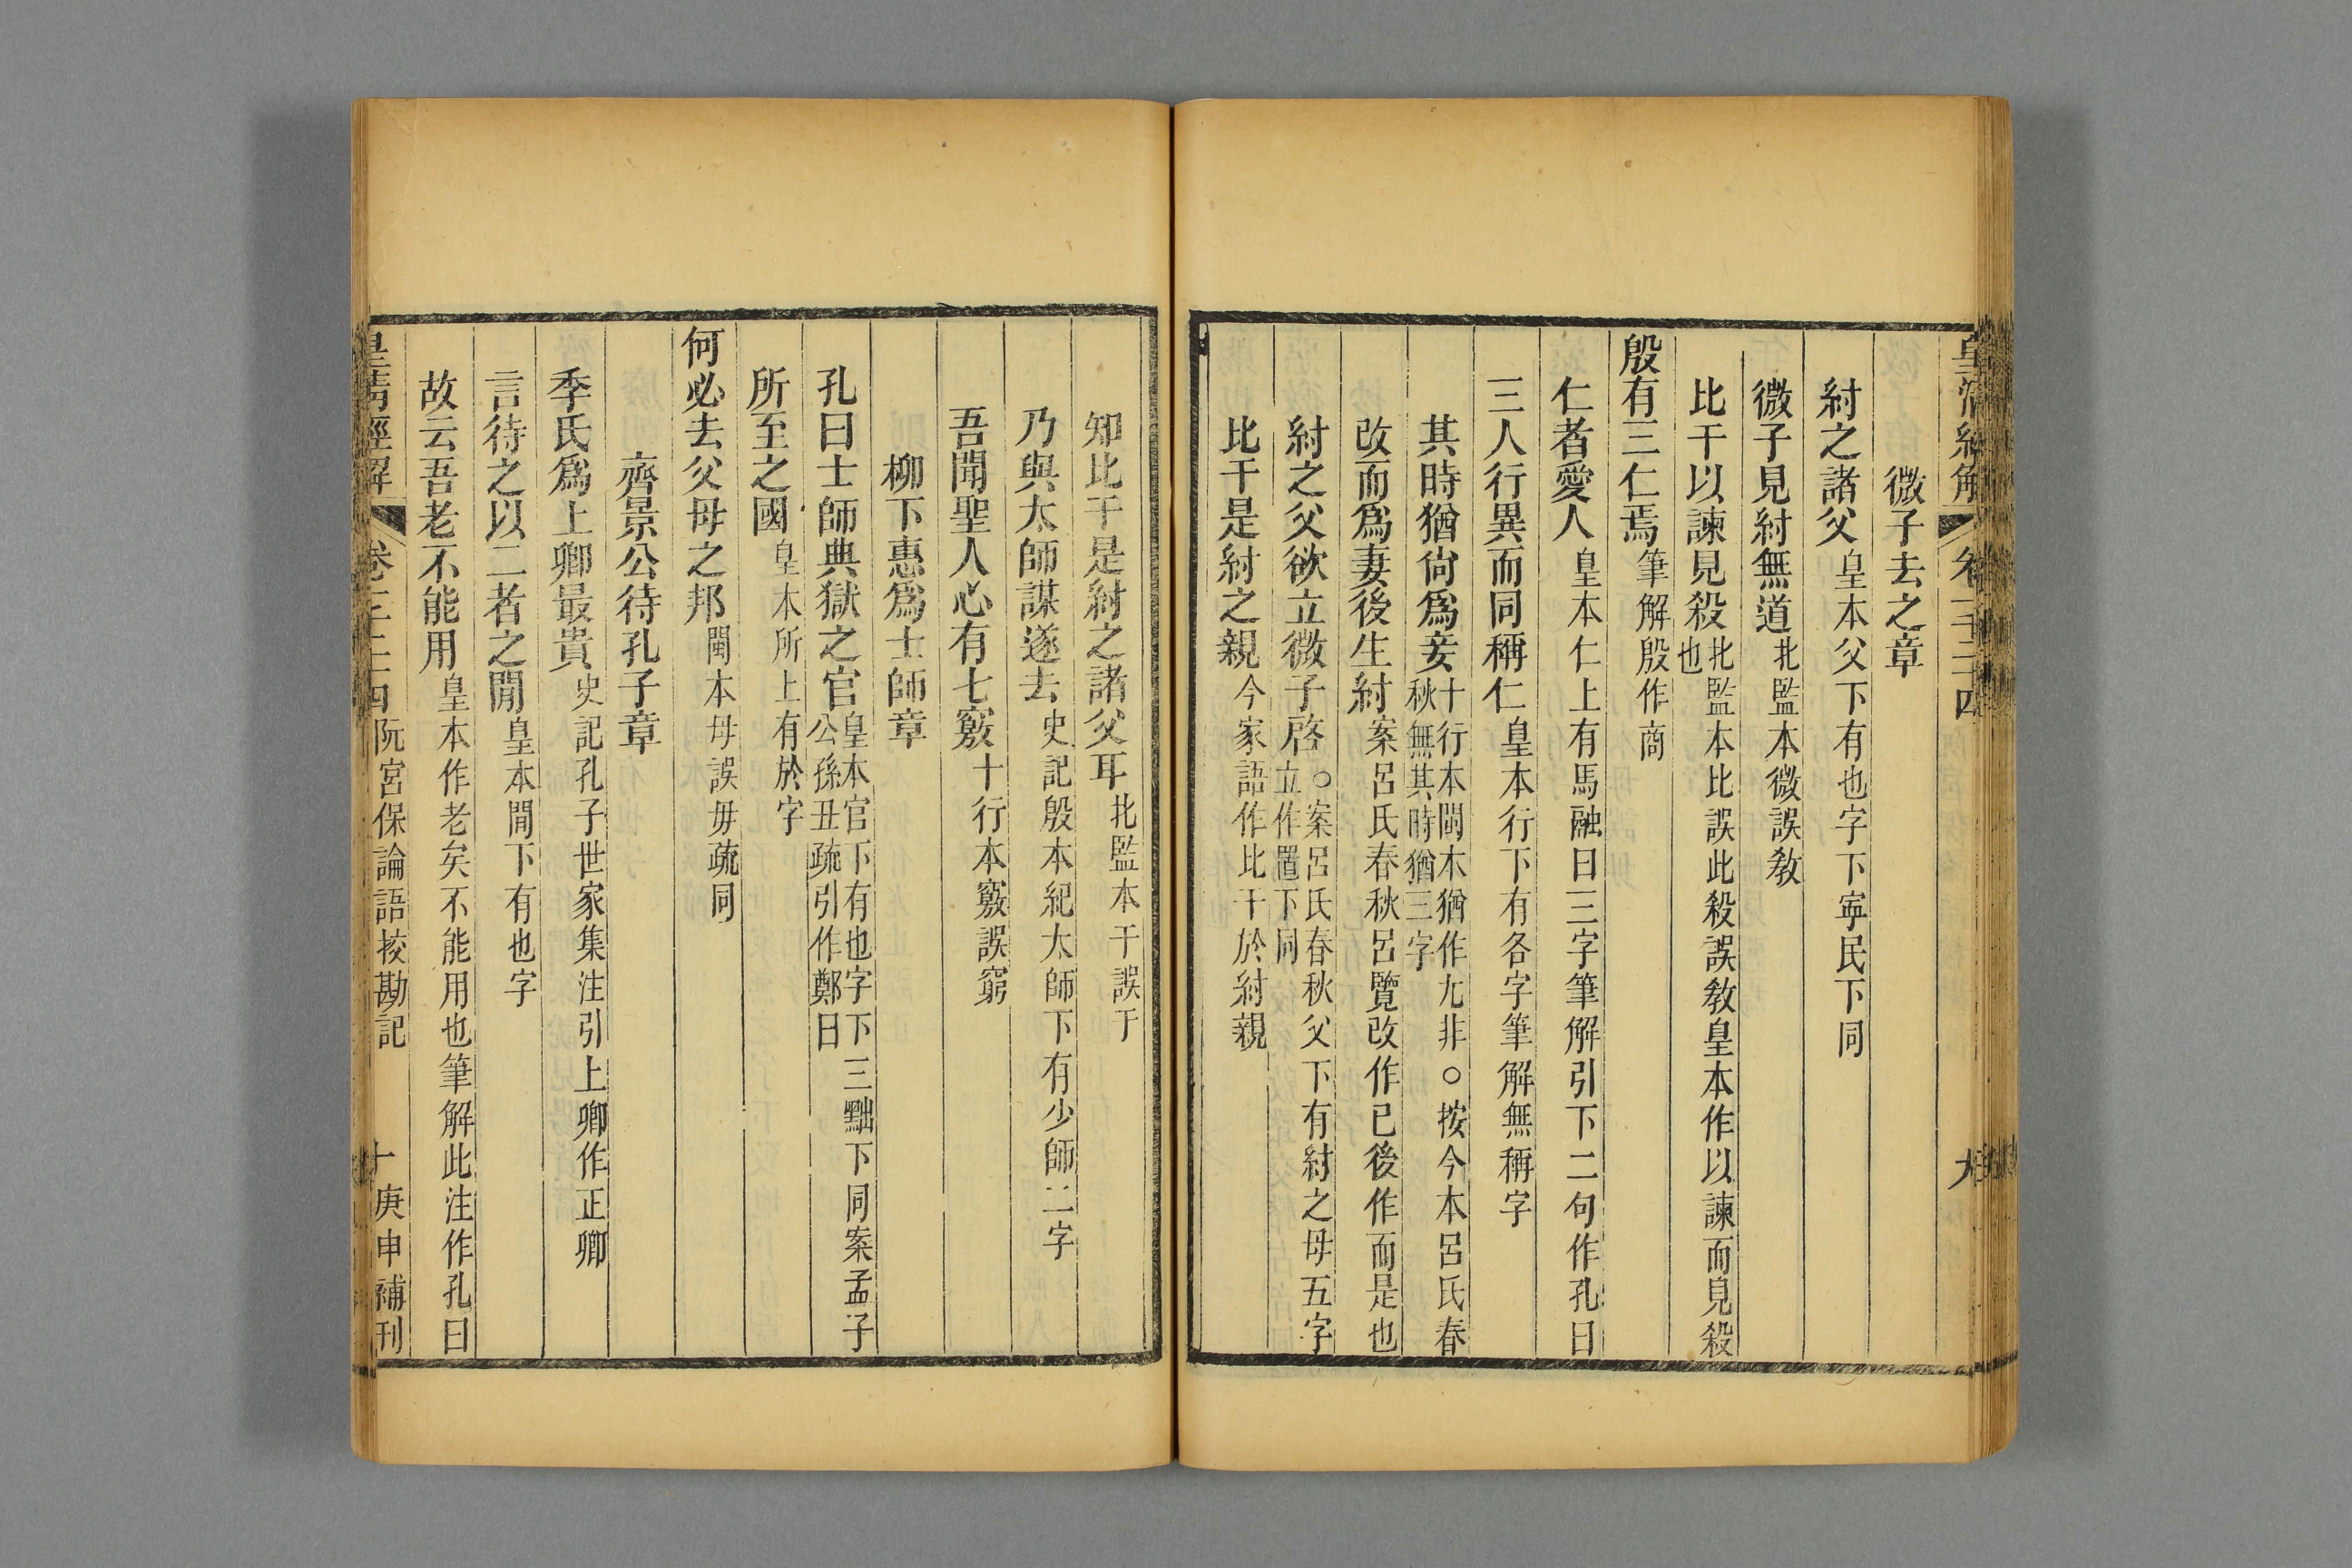 皇清經解 卷千二十四 九
微子去之章
紂之諸父皇本父下有也字下寧民下同
微子見紂無道北監本微誤敎
比干以諫見殺北監本比誤此殺誤敎皇本作以諫而見殺也
殷有三仁焉筆解殷作商
仁者愛人皇本仁上有馬融曰三字筆解引下二句作孔曰
三人行異而同稱仁皇本行下有各字筆解無稱字
其時猶尙爲妾十行本閩本猶作尢非○按今本呂氏春秋無其時猶三字
改而爲妻後生紂案呂氏春秋呂覽改作已後作而是也
紂之父欲立微子啓○案呂氏春秋父下有紂之母五字立作置下同
比干是紂之親今家語作比干於紂親
知比干是紂之諸父耳北監本干誤于
乃與太師謀遂去史記殷本紀太師下有少師二字
吾聞聖人心有七竅十行本竅誤窮
柳下惠爲士師章
孔曰士師典獄之官皇本官下有也字下三黜下同案孟子公孫丑疏引作鄭曰
所至之國皇本所上有於字
何必去父母之邦閩本母誤毋疏同
齊景公待孔子章
季氏爲上卿最貴史記孔子世家集注引上卿作正卿
言待之以二者之閒皇本閒下有也字
故云吾老不能用皇本作老矣不能用也筆解此注作孔曰
皇淸經解 卷千二十四 阮宮保論語挍勘記 十 庚申補刊